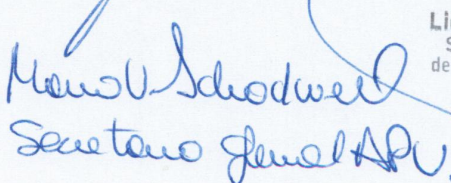 Li
S
de
Mario V. Schodwell
Secretario General APV.